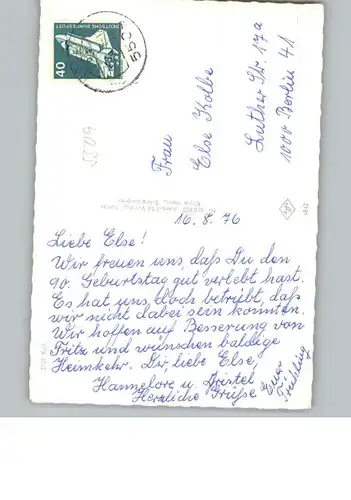 DEUTSCHE BUNDESPOST
40
550
5509
Frau
Else Kolbe
Luther Str. 17a
1000 Berlin 41
16.8.76
Liebe Else!
Wir freuen uns, daß Du den
90. Geburtstag gut verlebt hast.
Es hat uns doch betrübt, daß
wir nicht dabei sein konnten.
Wir hoffen auf Besserung von
Fritz und wünschen baldige
Heimkehr. Dir, liebe Else,
Herzliche Grüße Euer
Hannelore u.